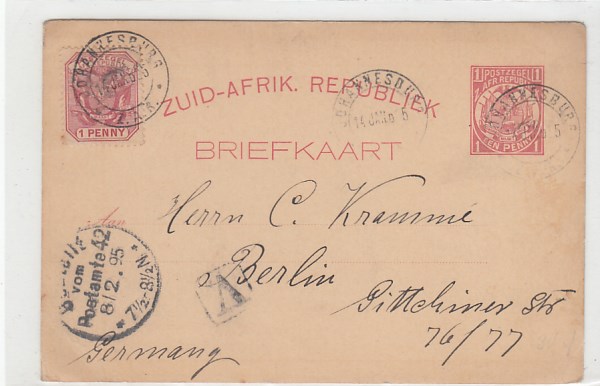 JOHANNESBURG
Z.A.R.
1 PENNY
ZUID-AFRIK. REPUBLIEK
JOHANNESBURG
14 JAN 95
1 POSTZEGEL 1
Z. AFR. REPUBLIEK
1 EEN PENNY 1
JOHANNESBURG
BRIEFKAART
Aan
Herrn C. Krammé
Berlin
Gittchiner Str
76/77
Germany
Bestellt
vom
Postamte 42
8/2.95
* 7½-8½ N. *
A